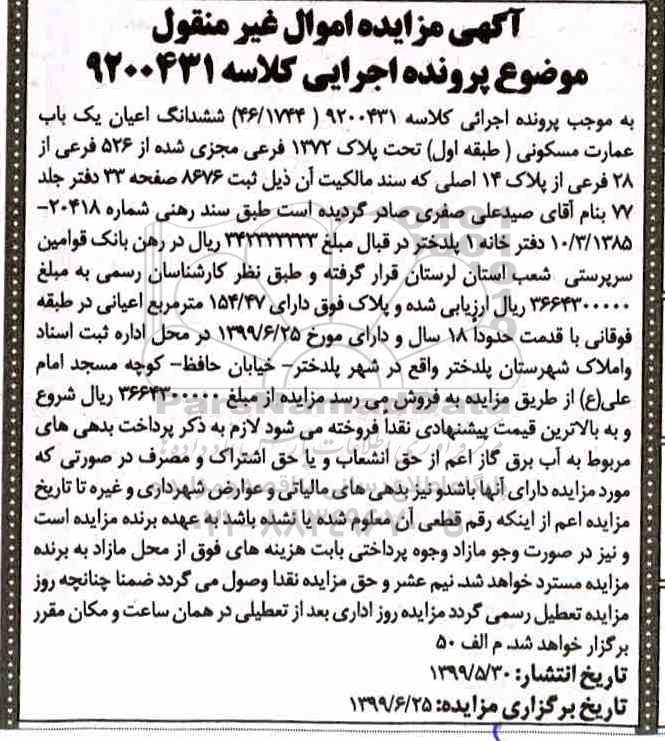 آگهی مزایده اموال غیر منقول
موضوع پرونده اجرایی کلاسه ۹۲۰۰۴۳۱
به موجب پرونده اجرائی کلاسه ۹۲۰۰۴۳۱ ( ۴۶/۱۷۴۴) ششدانگ اعیان یک باب
عمارت مسکونی ( طبقه اول) تحت پلاک ۱۳۷۲ فرعی مجزی شده از ۵۲۶ فرعی از
۲۸ فرعی از پلاک ۱۴ اصلی که سند مالکیت آن ذیل ثبت ۸۶۷۶ صفحه ۳۳ دفتر جلد
۷۷ بنام آقای صیدعلی صفری صادر گردیده است طبق سند رهنی شماره ۲۰۴۱۸-
۱۰/۳/۱۳۸۵ دفتر خانه ۱ پلدختر در قبال مبلغ ۳۴۲۳۳۳۳۳۳ ریال در رهن بانک قوامین
سرپرستی شعب استان لرستان قرار گرفته و طبق نظر کارشناسان رسمی به مبلغ
۳۶۶۴۳۰۰۰۰۰ ریال ارزیابی شده و پلاک فوق دارای ۱۵۴/۴۷ مترمربع اعیانی در طبقه
فوقانی با قدمت حدوداً ۱۸ سال و دارای مورخ ۱۳۹۹/۶/۲۵ در محل اداره ثبت اسناد
واملاک شهرستان پلدختر واقع در شهر پلدختر- خیابان حافظ- کوچه مسجد امام
علی(ع) از طریق مزایده به فروش می رسد مزایده از مبلغ ۳۶۶۴۳۰۰۰۰۰ ریال شروع
و به بالاترین قیمت پیشنهادی نقدا فروخته می شود لازم به ذکر پرداخت بدهی های
مربوط به آب برق گاز اعم از حق انشعاب و یا حق اشتراک و مصرف در صورتی که
مورد مزایده دارای آنها باشدو نیز بدهی های مالیاتی و عوارض شهرداری و غیره تا تاریخ
مزایده اعم از اینکه رقم قطعی آن معلوم شده یا نشده باشد به عهده برنده مزایده است
و نیز در صورت وجو مازاد وجوه پرداختی بابت هزینه های فوق از محل مازاد به برنده
مزایده مسترد خواهد شد. نیم عشر و حق مزایده نقدا وصول می گردد ضمنا چنانچه روز
مزایده تعطیل رسمی گردد مزایده روز اداری بعد از تعطیلی در همان ساعت و مکان مقرر
برگزار خواهد شد. م الف ۵۰
تاریخ انتشار: ۱۳۹۹/۵/۳۰
تاریخ برگزاری مزایده: ۱۳۹۹/۶/۲۵
ParsNamadData